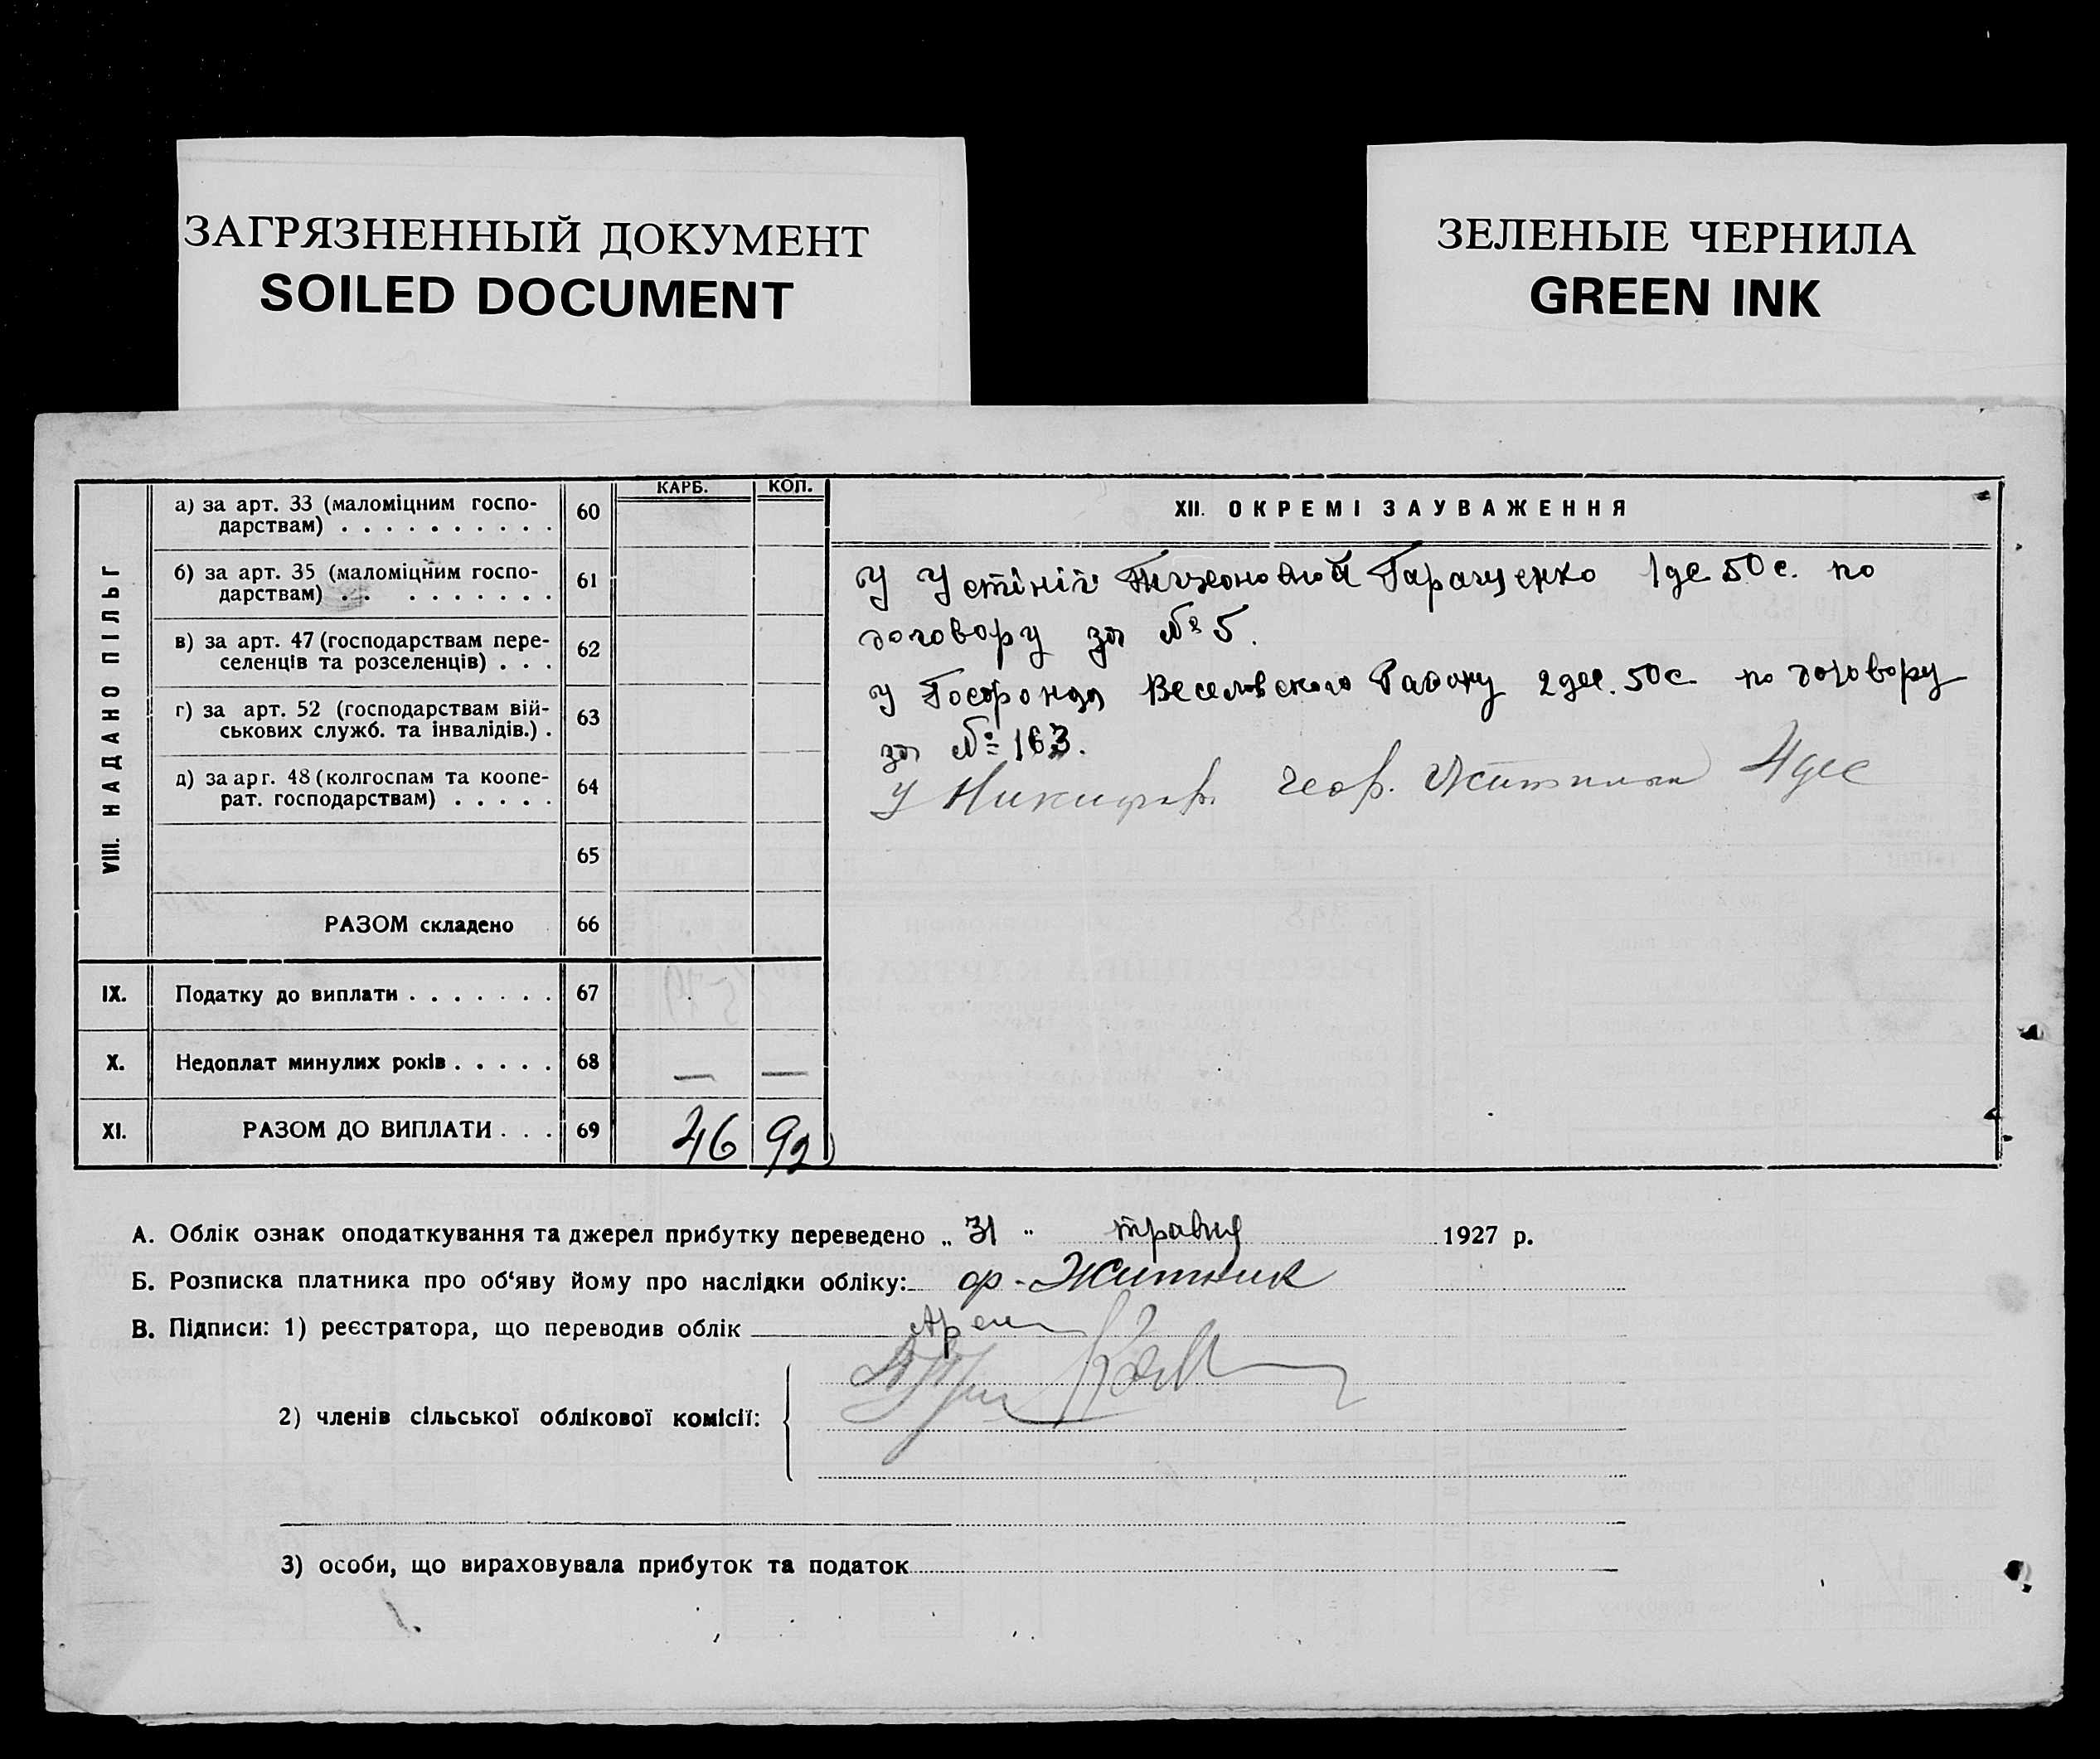 ЗАГРЯЗНЕННЫЙ ДОКУМЕНТ
SOILED DOCUMENT
ЗЕЛЕНЫЕ ЧЕРНИЛА
GREEN INK
VIII. НАДАНО ПІЛЬГ
КАРБ. КОП.
а) за арт. 33 (маломіцним госпо-
дарствам) . . . . . . . . . . 60
б) за арт. 35 (маломіцним госпо-
дарствам) . . . . . . . . . 61
в) за арт. 47 (господарствам пере-
селенців та розселенців) . . . 62
г) за арт. 52 (господарствам вій-
ськових служб. та інвалідів.) . 63
д) за арт. 48 (колгоспам та коопе-
рат. господарствам) . . . . . 64
65
РАЗОМ складено 66
IX. Податку до виплати . . . . . . . 67
X. Недоплат минулих років . . . . . 68 — —
XI. РАЗОМ ДО ВИПЛАТИ . . . 69 46 92
XII. ОКРЕМІ ЗАУВАЖЕННЯ
У Устіній Тихоновной Гаращенко 1де 50с. по
договору за № 5.
у Госфонда Веселовского Району 2дес. 50с по договору
за № 163.
У Никифор. Геор. 4дес
А. Облік ознак оподаткування та джерел прибутку переведено „ 31 " травня 1927 р.
Б. Розписка платника про об‘яву йому про наслідки обліку: ф-Житник
В. Підписи: 1) реєстратора, що переводив облік
2) членів сільської облікової комісії:
3) особи, що вираховувала прибуток та податок